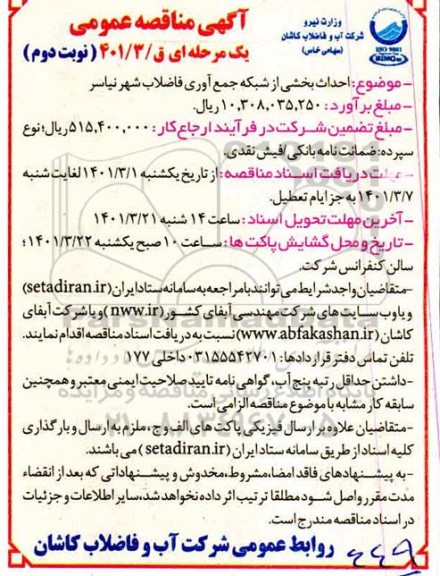 آگهی مناقصه عمومی
یک مرحله ای ق/۴۰۱/۳ (نوبت دوم)
وزارت نیرو
شرکت آب و فاضلاب کاشان
(سهامی خاص)
ISO 9001
BIMCo
- موضوع: احداث بخشی از شبکه جمع آوری فاضلاب شهر نیاسر
- مبلغ برآورد: ۱۰,۳۰۸,۰۳۵,۲۵۰ ریال.
- مبلغ تضمین شرکت در فرآیند ارجاع کار: ۵۱۵,۴۰۰,۰۰۰ ریال؛ نوع
سپرده: ضمانت نامه بانکی/فیش نقدی.
- مهلت دریافت اسناد مناقصه: از تاریخ یکشنبه ۱۴۰۱/۳/۱ لغایت شنبه
۱۴۰۱/۳/۷ به جز ایام تعطیل.
- آخرین مهلت تحویل اسناد: ساعت ۱۴ شنبه ۱۴۰۱/۳/۲۱
- تاریخ و محل گشایش پاکت ها: ساعت ۱۰ صبح یکشنبه ۱۴۰۱/۳/۲۲؛
سالن کنفرانس شرکت.
-متقاضیان واجد شرایط می توانند با مراجعه به سامانه ستاد ایران (setadiran.ir)
و یا وب سایت های شرکت مهندسی آبفای کشور (nww.ir) و یا شرکت آبفای
کاشان (www.abfakashan.ir) نسبت به دریافت اسناد مناقصه اقدام نمایند.
تلفن تماس دفتر قراردادها: ۰۳۱۵۵۵۴۲۷۰۱ داخلی ۱۷۷
-داشتن حداقل رتبه پنج آب، گواهی نامه تایید صلاحیت ایمنی معتبر و همچنین
سابقه کار مشابه با موضوع مناقصه الزامی است.
-متقاضیان علاوه بر ارسال فیزیکی پاکت های الف و ج، ملزم به ارسال و بارگذاری
کلیه اسناد از طریق سامانه ستاد ایران (setadiran.ir) می باشند.
-به پیشنهادهای فاقد امضا، مشروط، مخدوش و پیشنهاداتی که بعد از انقضاء
مدت مقرر واصل شود مطلقا ترتیب اثر داده نخواهد شد، سایر اطلاعات و جزئیات
در اسناد مناقصه مندرج است.
روابط عمومی شرکت آب و فاضلاب کاشان